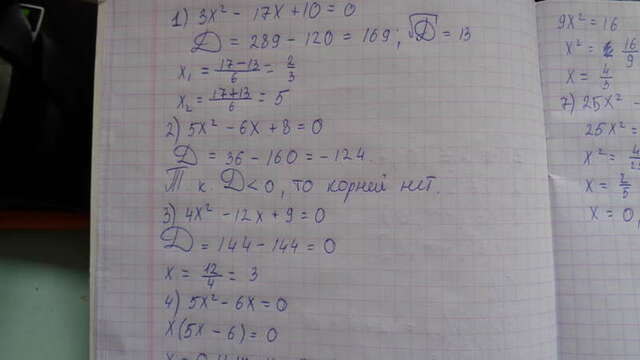 1) 3x² - 17x + 10 = 0
D = 289 - 120 = 169; √D = 13
x₁ = (17-13)/6 = 2/3
x₂ = (17+13)/6 = 5
2) 5x² - 6x + 8 = 0
D = 36 - 160 = -124.
Т. к. D < 0, то корней нет.
3) 4x² - 12x + 9 = 0
D = 144 - 144 = 0
x = 12/4 = 3
4) 5x² - 6x = 0
x(5x - 6) = 0
9x² = 16
x² = 16/9
x = 4/3
7) 25x² -
25x² =
x² =
x = 2/5
x = 0,